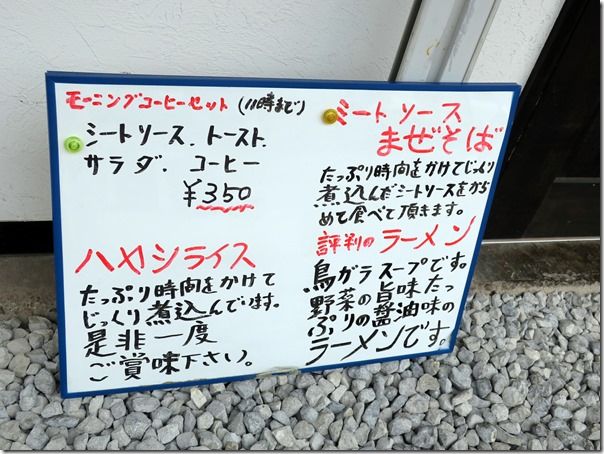 モーニングコーヒーセット (11時まで)
ミートソース．トースト．
サラダ．コーヒー
¥350
ハヤシライス
たっぷり時間をかけて
じっくり煮込んでいます。
是非一度
ご賞味下さい。
ミートソース
まぜそば
たっぷり時間をかけてじっくり
煮込んだミートソースをから
めて食べて頂きます。
評判のラーメン
鳥ガラスープです。
野菜の旨味たっ
ぷりの醤油味の
ラーメンです。